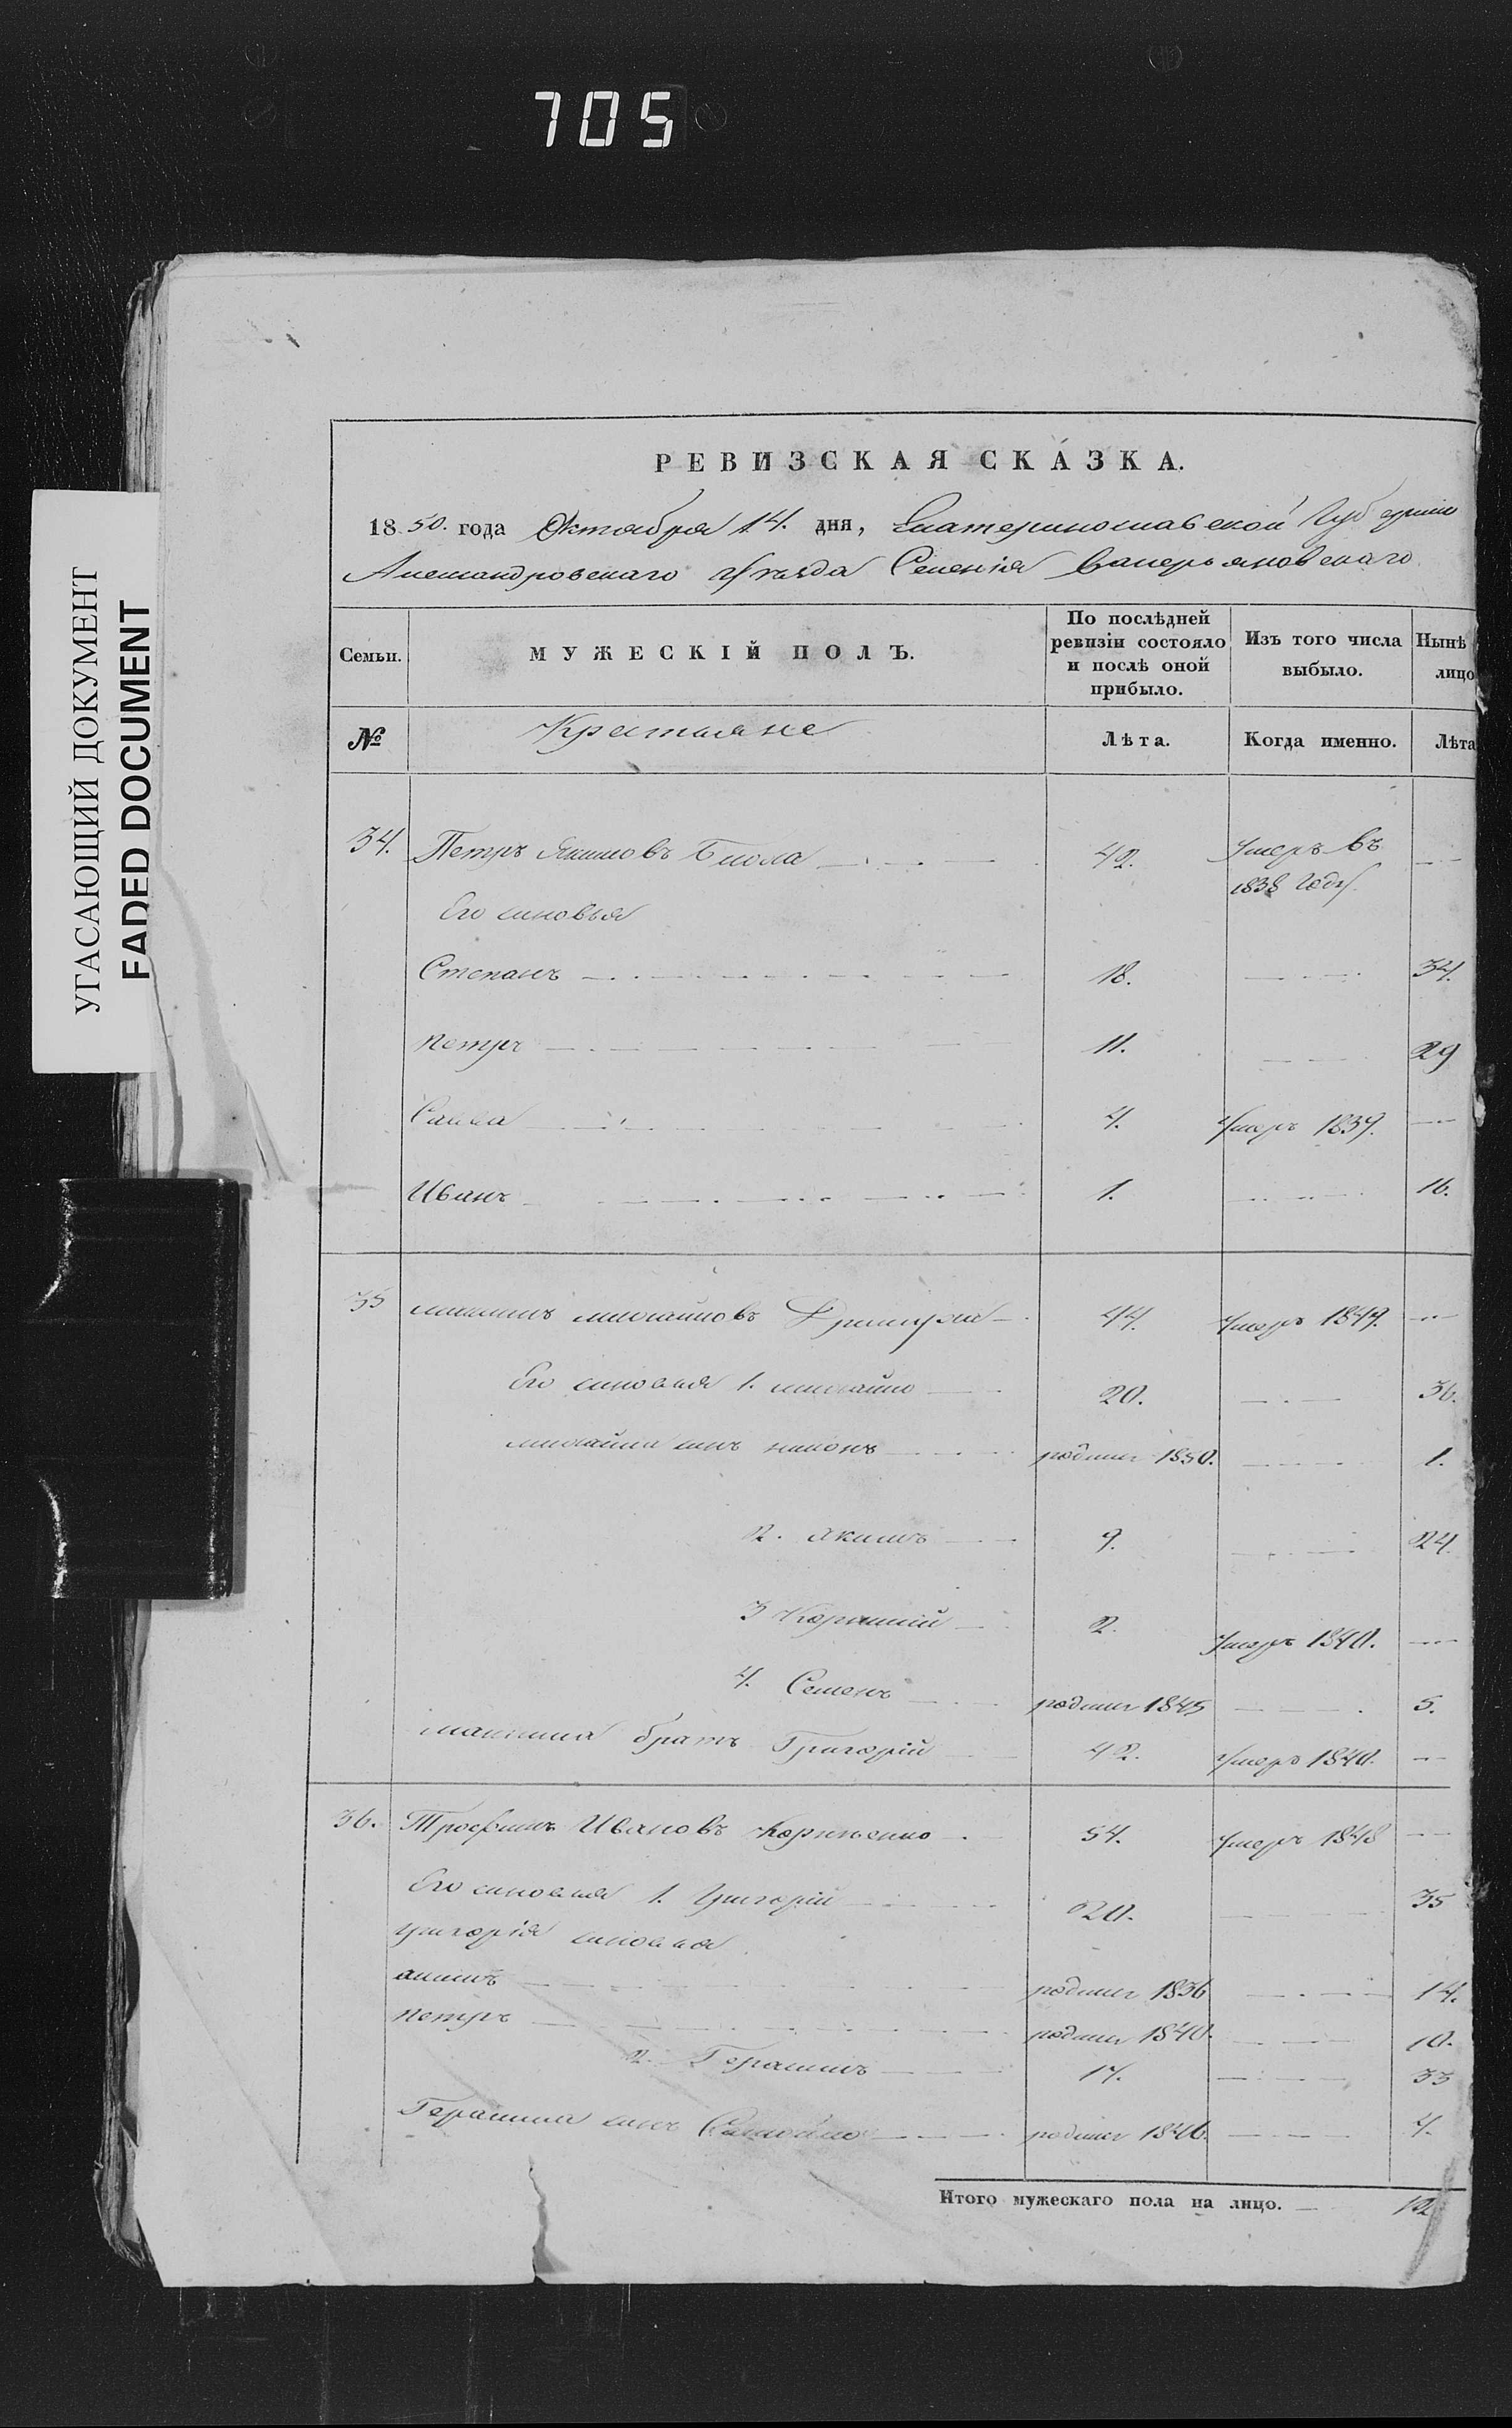 705
УГАСАЮЩИЙ ДОКУМЕНТ
FADED DOCUMENT
РЕВИЗСКАЯ СКА́ЗКА.
1850. года Октября 14. дня, Екатеринославской Губернiи
Александровскаго Уѣзда Селенiя Валерьяновскаго
Семьи. МУЖЕСКІЙ ПОЛЪ. По послѣдней ревизіи состояло и послѣ оной прибыло. Изъ того числа выбыло. Нынѣ лицо
№ Крестьяне Лѣта. Когда именно. Лѣта
34. Петръ Якимовъ 42. Умеръ въ 1838 году
Его сыновья
Степанъ 18. 34.
Петръ 11. 29
Савва 4. Умеръ 1839.
Иванъ 1. 16.
35 Максимъ Михайловъ 44. Умеръ 1849.
Его сыновья 1. Михайло 20. 36.
Михайла сынъ родился 1850. 1.
2. Якимъ 9. 24.
3 Корнилий 2. Умеръ 1840.
4. Семенъ родился 1845 5.
Максима братъ Григорій 42. Умеръ 1840.
36. Трофимъ Ивановъ Корниенко 54. Умеръ 1848
Его сыновья 1. Григорій 20. 35
Григорія сыновья
родился 1836 14.
Петръ родился 1840. 10.
2. Герасимъ 17. 33
Герасима сынъ Самойло родился 1846. 4.
Итого мужескаго пола на лицо. 12